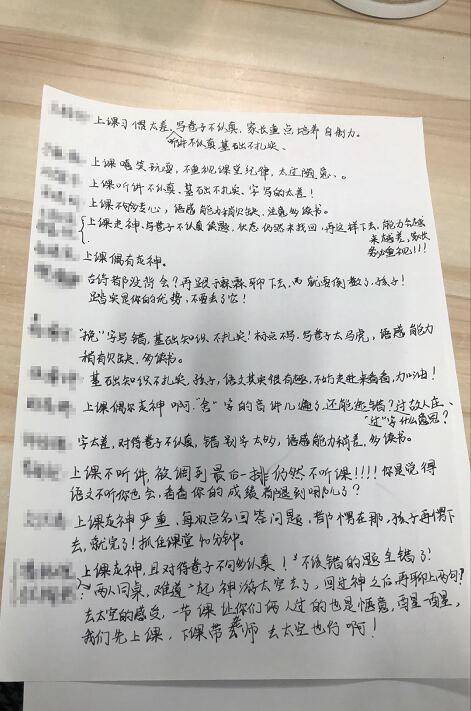 上课习惯太差,写卷子不认真,家长重点培养自制力。
听讲不认真,基础不扎实、
上课嘻笑玩耍,不重视课堂纪律,太过随意、。
上课听讲不认真、基础不扎实,字写的太差!
上课不够走心,语感能力稍欠缺,注意多读书。
上课走神,写卷子不认真读题,状态仍然未找回,再这样下去,能力会越
来越差,家长
务必重视!!!
上课偶有走神。
古诗都没背会?再跟子聊下去,就要倒数了,孩子!
踏实是你的优势,不要丢了它!
"挽"字写错,基础知识不扎实!标点不写,写卷子太马虎,语感能力
稍有欠缺,多读书。
基础知识不扎实,孩子,语文其实很有趣,不妨走进来看看,加油!
上课偶尔走神啊."舍"字的音讲几遍了,还能选错?过故人庄、
"过"字什么意思?
字太差,对待卷子不认真,错别字太多,语感能力稍差,多读书。
上课不听讲,被调到最后一排仍然不听课!!!!你是觉得
语文不听你也会,看看你的成绩都退到哪儿了?
上课走神严重,每次点名回答问题,都懵在那,孩子再懵下
去,就完了!抓住课堂40分钟。
上课走神,且对待卷子不够认真!不该错的题全错了!
两人同桌,难道一起神游太空去了,回过神之后再聊上两句?
去太空的感受,一节课让你们俩人过的也是惬意,醒一醒,
我们先上课,下课带老师去太空也行啊!